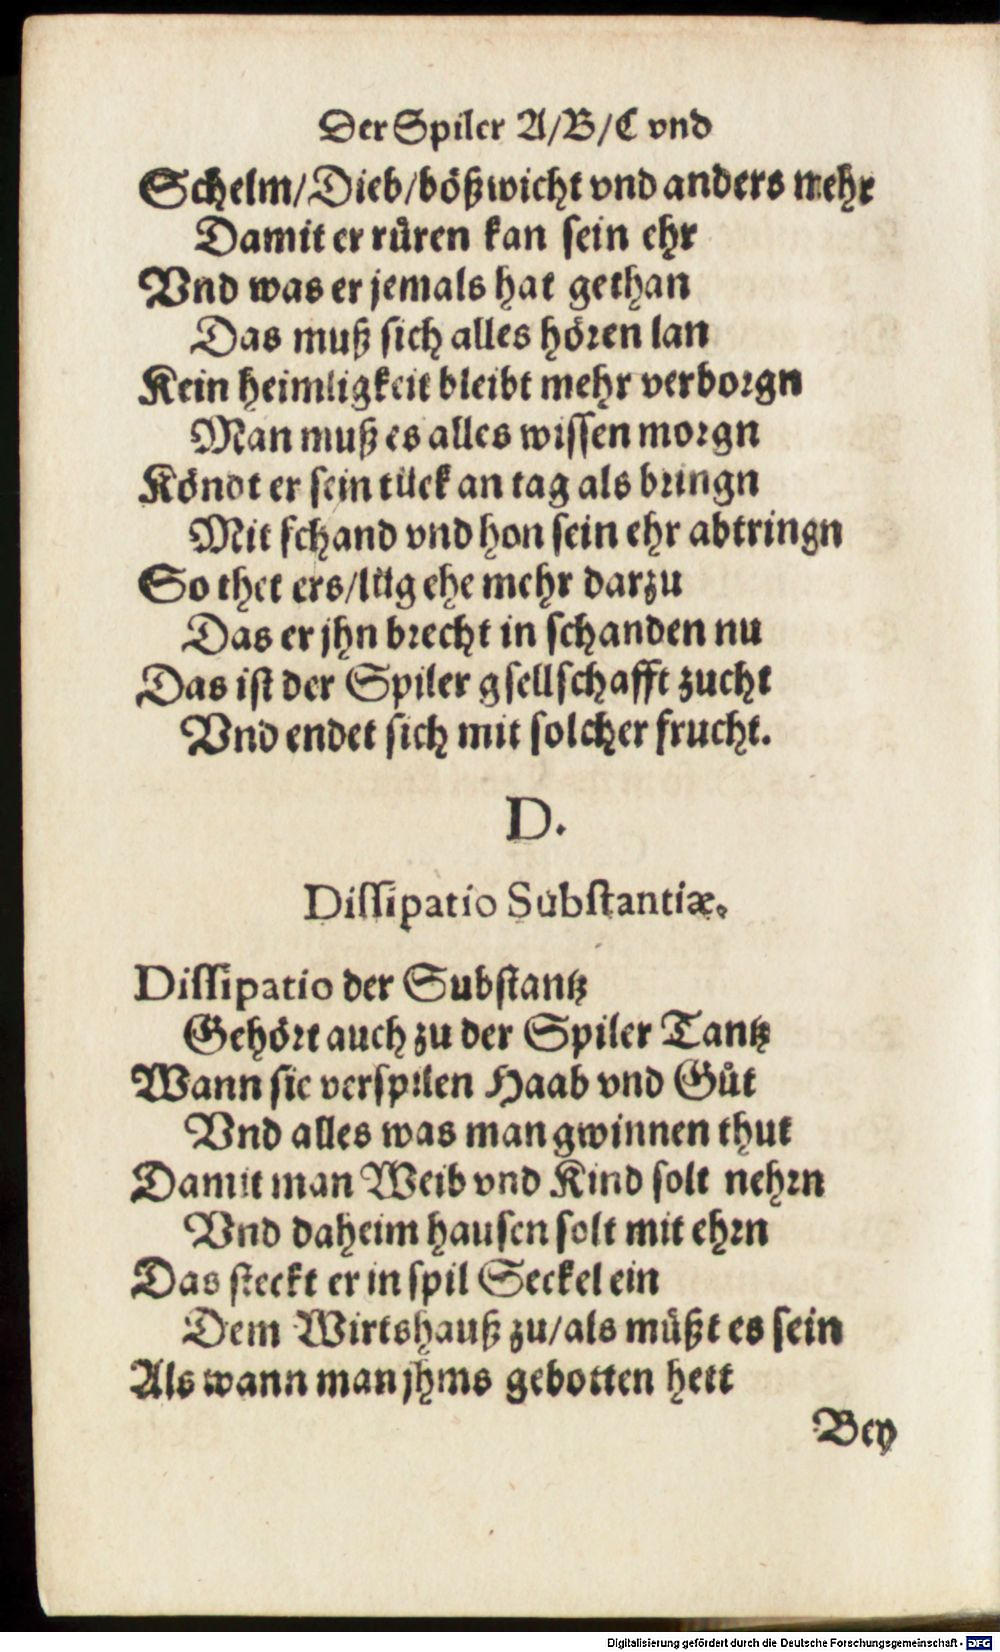 Der Spiler A/B/C vnd
Schelm/Dieb/bößwicht vnd anders mehr
Damit er růren kan sein ehr
Vnd was er jemals hat gethan
Das muß sich alles hören lan
Kein heimligkeit bleibt mehr verborgn
Man muß es alles wissen morgn
Köndt er sein tück an tag als bringn
Mit schand vnd hon sein ehr abtringn
So thet ers/lüg ehe mehr darzu
Das er jhn brecht in schanden nu
Das ist der Spiler gsellschafft zucht
Vnd endet sich mit solcher frucht.
D.
Dissipatio Substantiæ.
Dissipatio der Substantz
Gehört auch zu der Spiler Tantz
Wann sie verspilen Haab vnd Gůt
Vnd alles was man gwinnen thut
Damit man Weib vnd Kind solt nehrn
Vnd daheim hausen solt mit ehrn
Das steckt er in spil Seckel ein
Dem Wirtshauß zu/als müßt es sein
Als wann man jhms gebotten hett
Bey
Digitalisierung gefördert durch die Deutsche Forschungsgemeinschaft - DFG